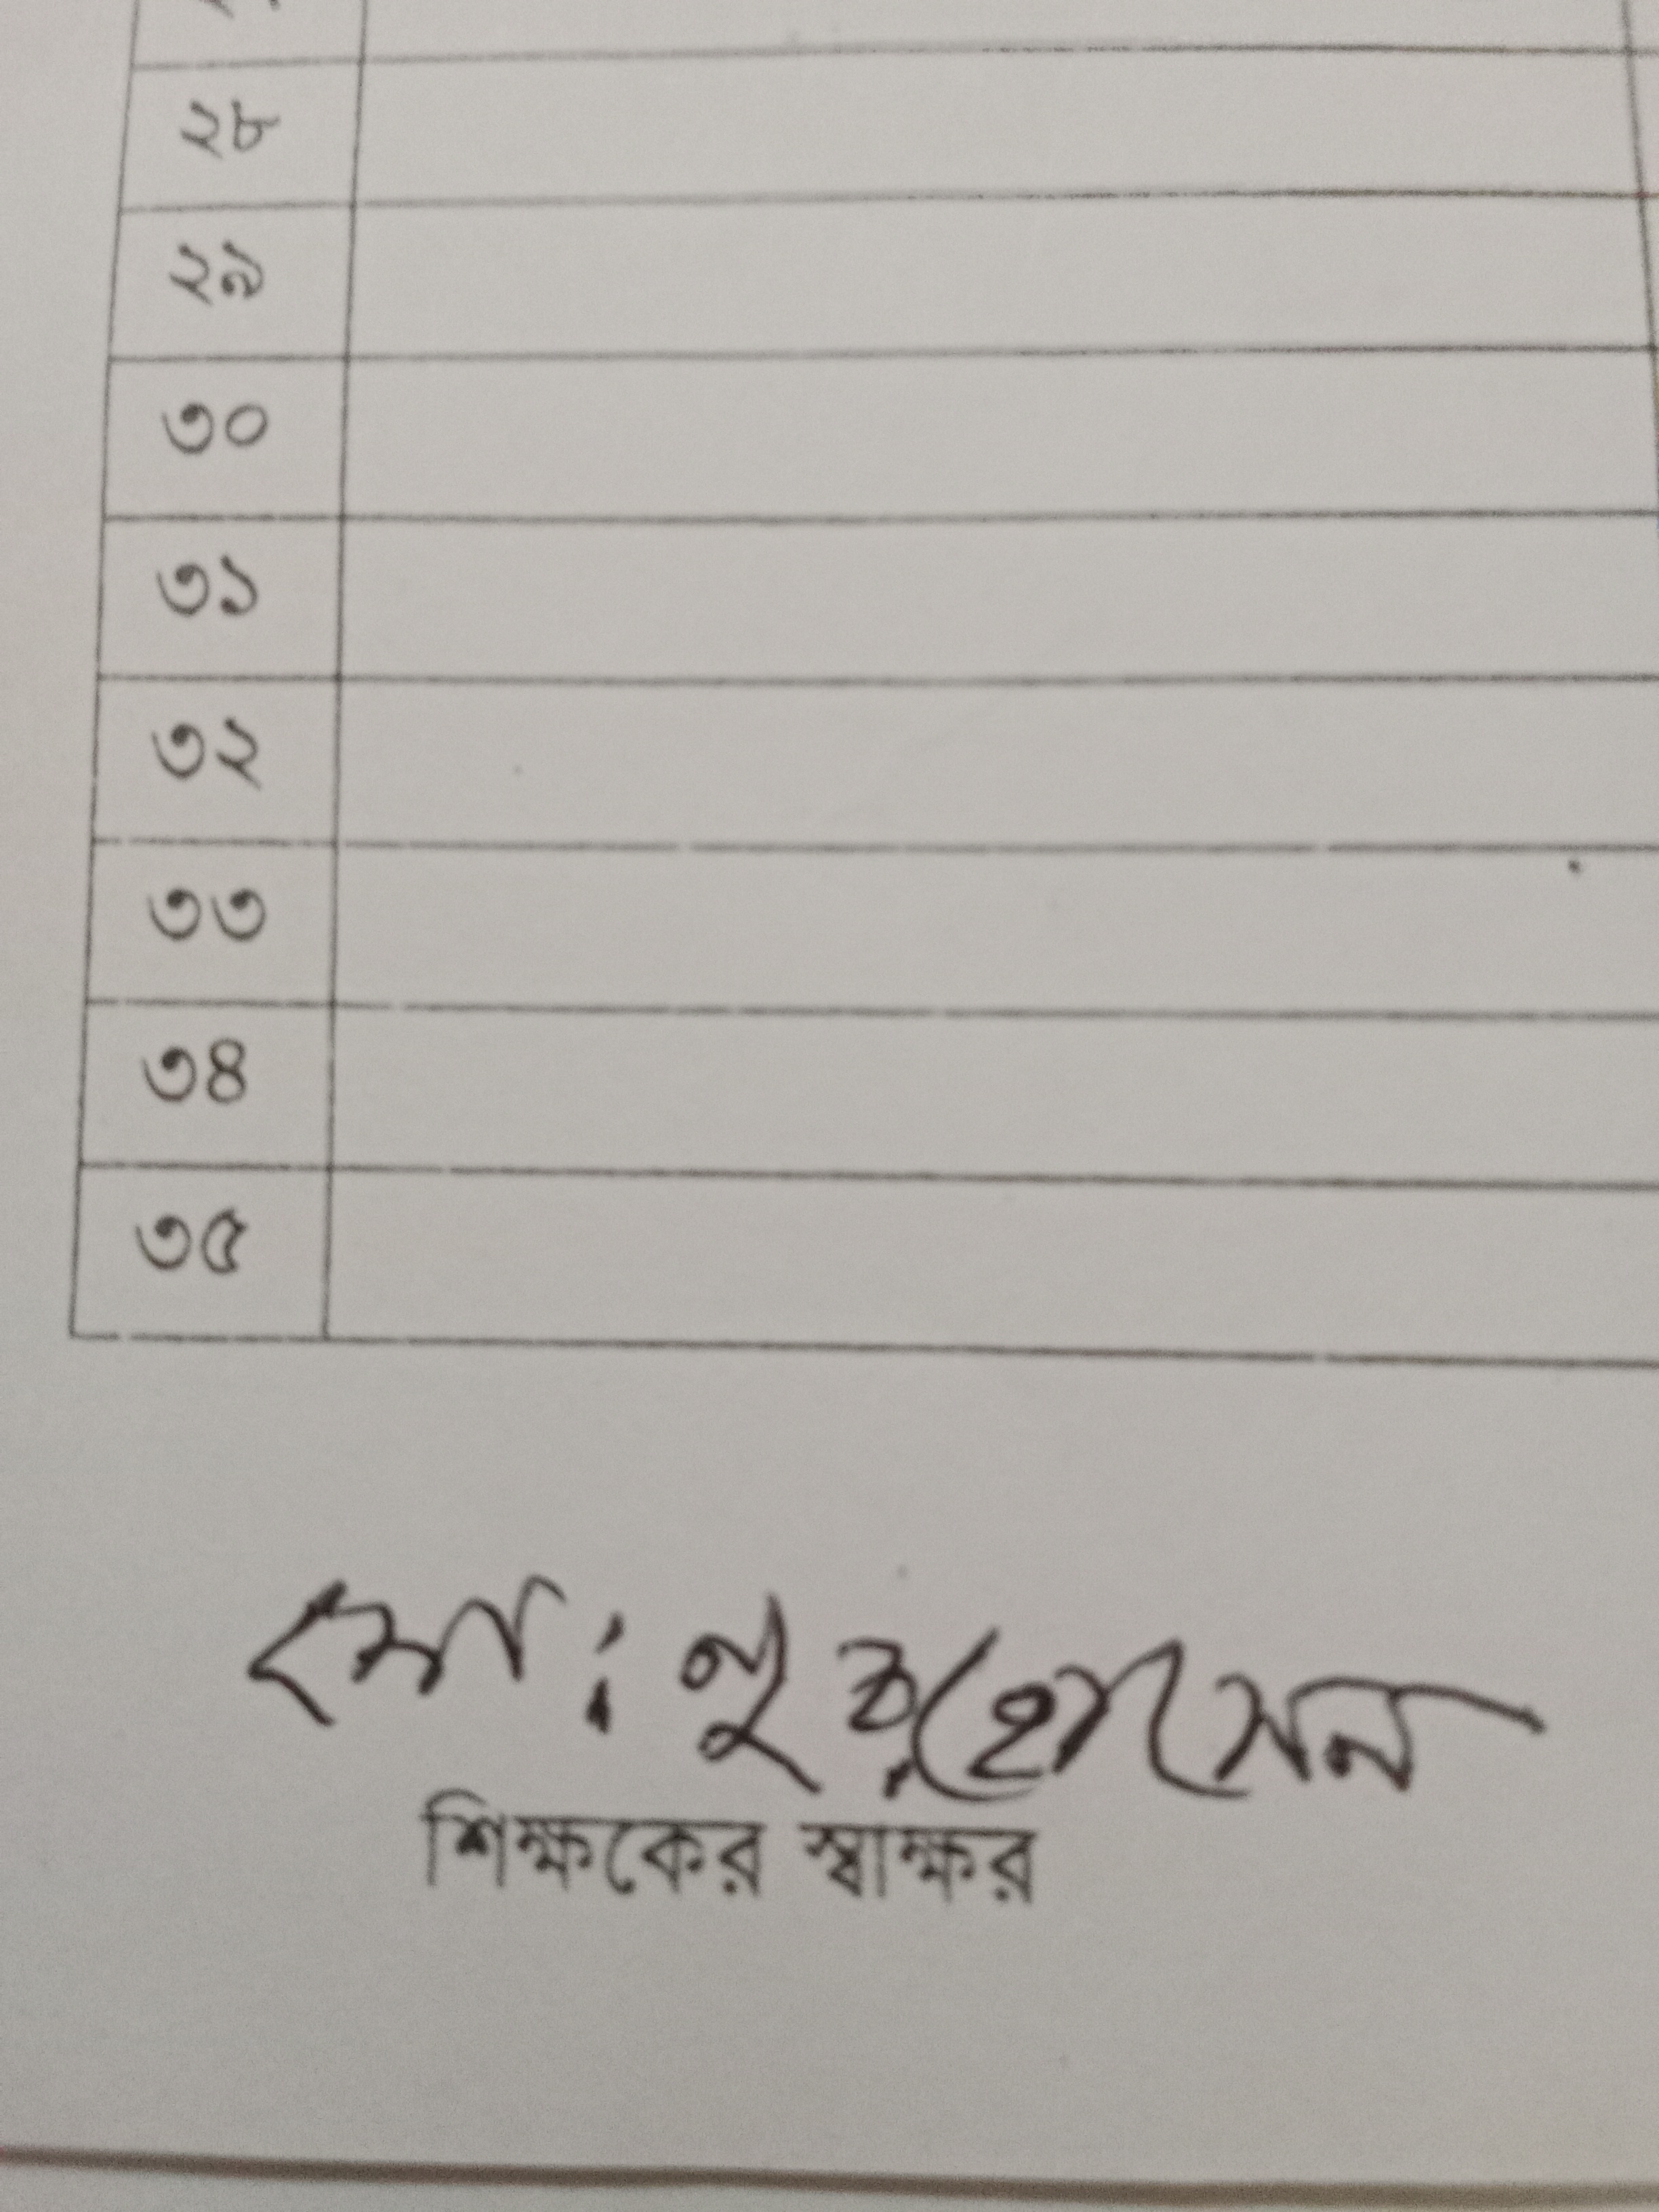 ২৮
২৯
৩০
৩১
৩২
৩৩
৩৪
৩৫
মো: নুর হোসেন
শিক্ষকের স্বাক্ষর